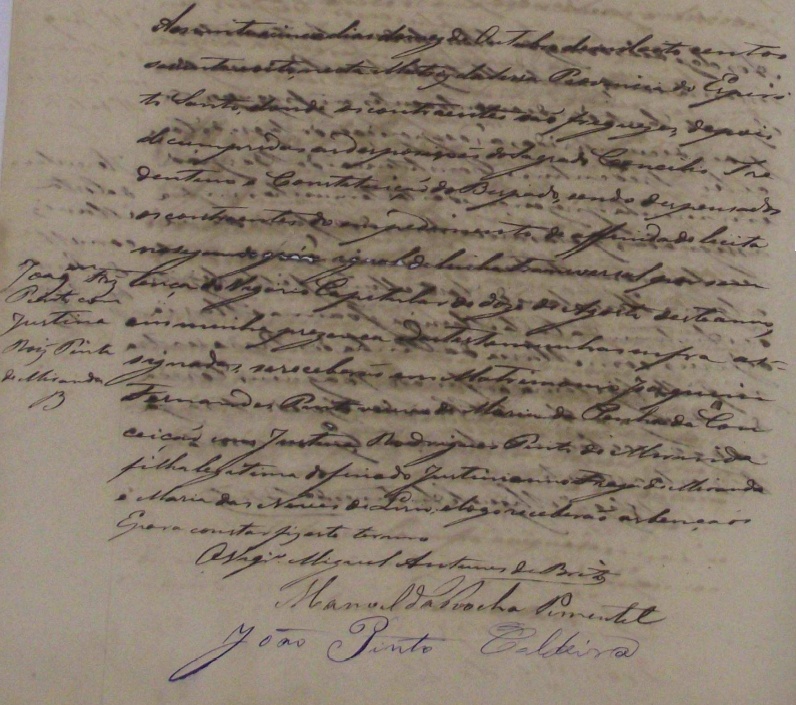 Aos vinte e cinco dias do mez de Outubro de mil oito centos
secenta e oito nesta Matriz da Provincia do Espiri
to Santo, donde os contraentes são freguezes, depois
de cumpridas as desposiçoẽs do Sagrado Concilio Tre
dentino e Constituição do Bispado, sendo despensados
os contraentes do empedimento de affinidade licita
no segundo gráo igual de linha transversal por
do Vigario Capitular de doze de Agosto deste anno,
em minha prezença e das testemunhas infra as-
signadas, se receberão em Matrimonio Joaquim
Fernandes Pinto viuvo de Maria da Penha da Con
ceição com Justina Rodrigues Pinto de Miranda
filha legitima do finado Justiniano de Miranda
e Maria das Neves de e logo receberão as bençaos
E para constar fiz este termo
O Vigr.º Miguel Antunes de Brito
Manoel da Rocha Pimentel
João Pinto Caldeira
Joaqm Frz
Pinto com
Justina
Roiz Pinto
de Miranda
B